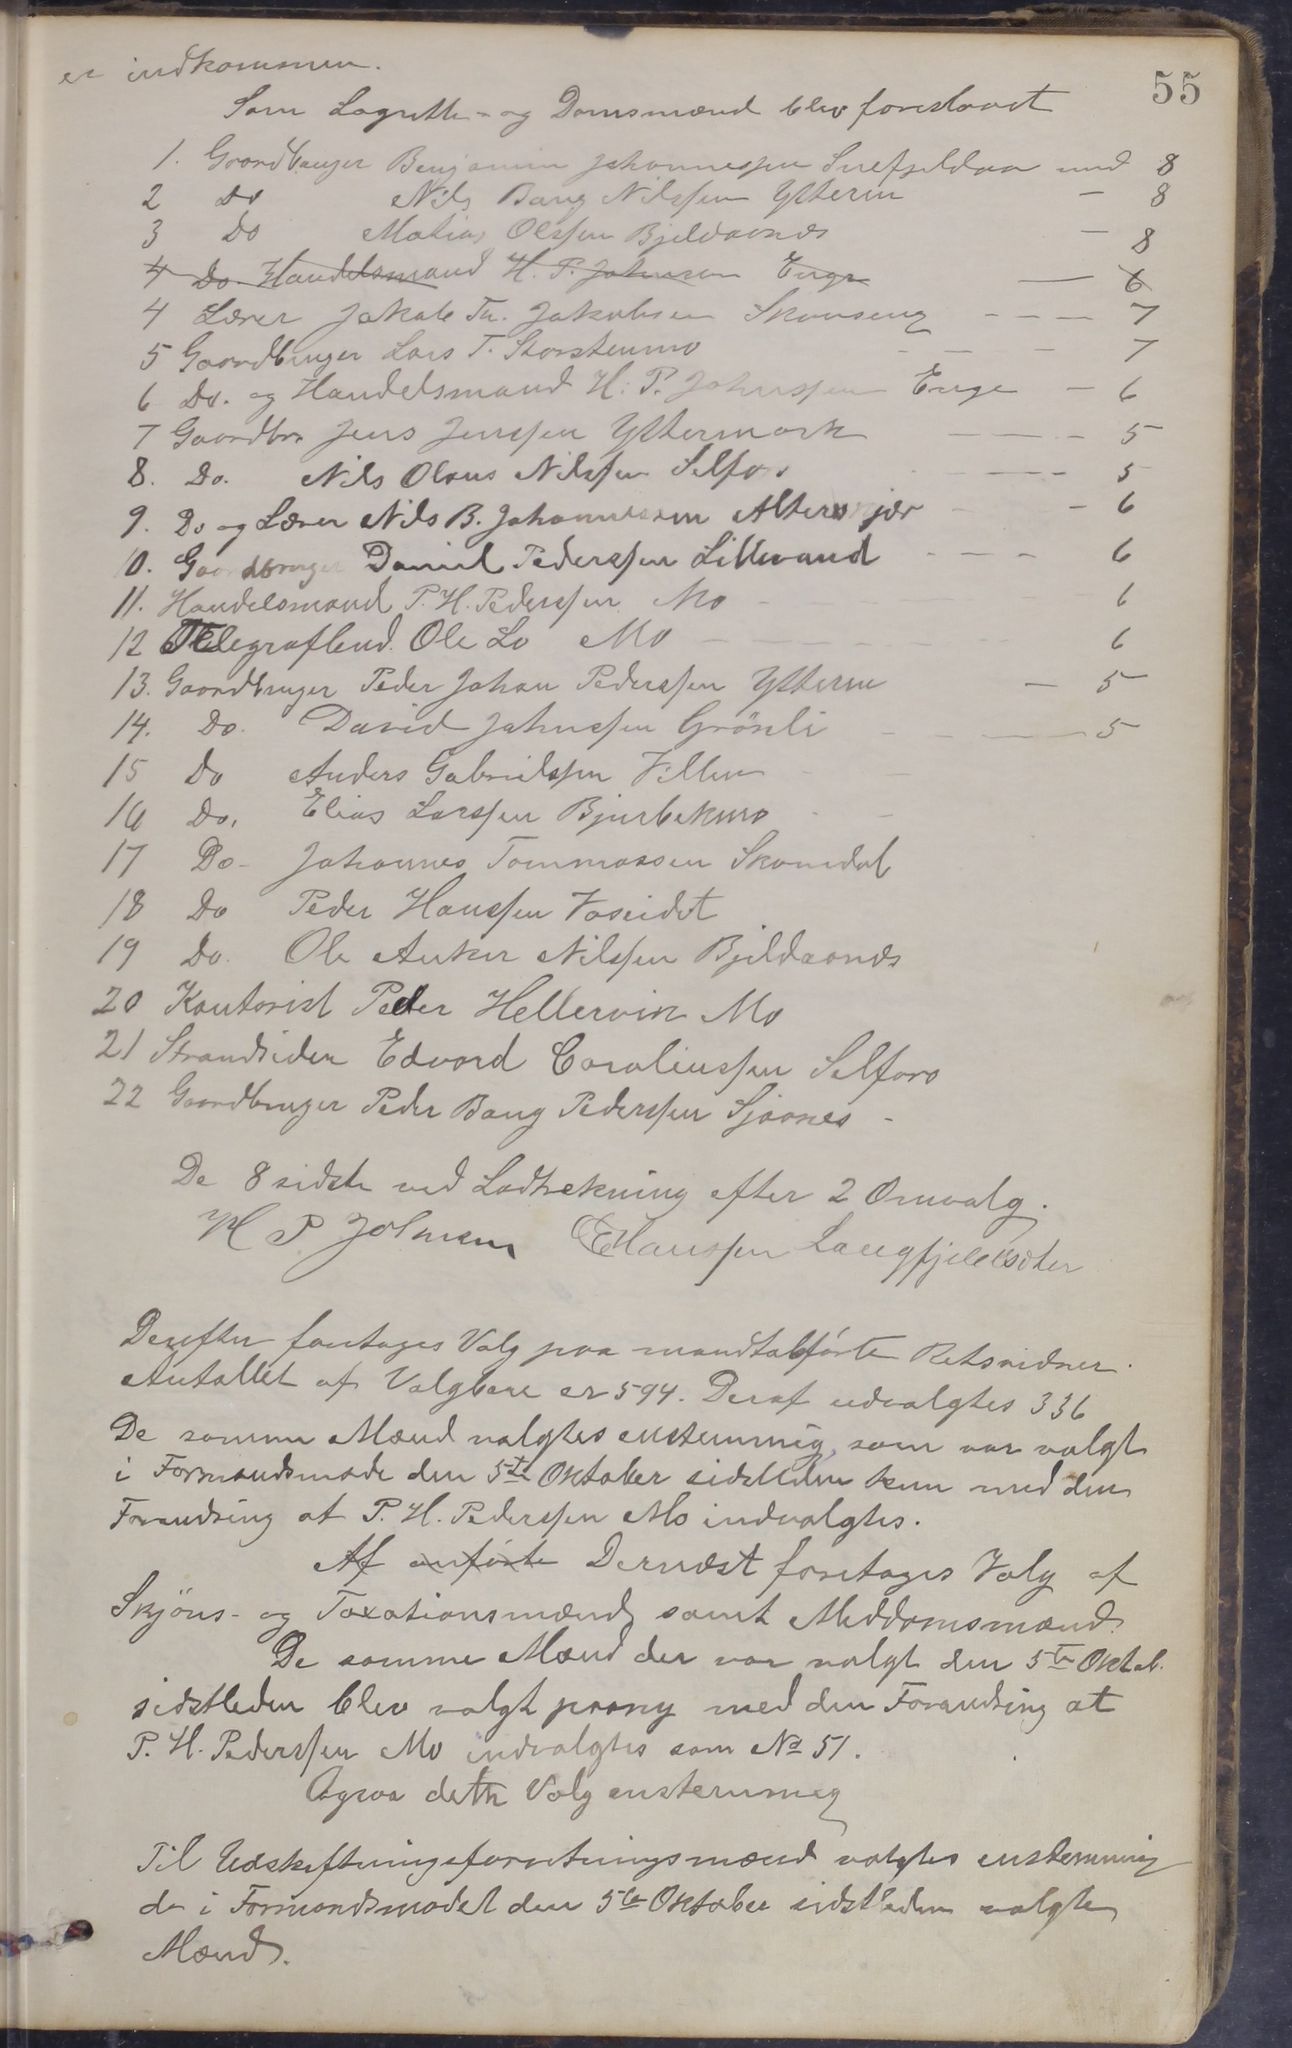 55
er indkommen.
Som Lagrette- og Domsmænd blev foreslaaet
1. Gaardbruger Benjamin Johannessen Snefjeldaa med 8
2 Do Nils Bang Nilssen Ytteren - 8
3 Do Matias Olssen Bjeldaanæs - 8
4 Do. Handelsmand H. P. Johnsen Enge - 6
4 Lærer Jakob Th. Jakobsen Skonseng - - - - 7
5 Gaardbruger Lars T. Storstenmo - - - 7
6 Do. og Handelsmand H. P. Johnssen Enge - 6
7 Gaardbr. Jens Jenssen Yttermark - - - 5
8. Do. Nils Olaus Nilssen Selfors - - - 5
9. Do og Lærer Nils B. Johannessen Alterskjær - - 6
10. Gaardbruger Daniel Pederssen Lillevand - - - - 6
11. Handelsmand P. H. Pederssen Mo - 6
12 Telegrafbud. Ole Lo Mo - 6
13. Gaardbruger Peder Johan Pederssen Ytteren - 5
14. Do. David Johnssen Grönli - - - 5
15 Do Anders Gabrielssen
16 Do. Elias Larssen Bjurbekmo - -
17 Do- Johannes Tommassen Skamdal
18 Do Peder Hanssen Voseidet
19 Do. Ole Anker Nilssen Bjeldaanæs
20 Kontorist Peder Hellervik Mo
21 Strandsidder Edvard Caroliussen Selfors
22 Gaardbruger Peder Bang Pederssen Sjaanes -
De 8 sidste ved Lodtrekning efter 2 Omvalg.
H P Johnsen E Hanssen Langfjeldsæter
Derefter foretages Valg paa mandtalførte Retsvidner.
Antallet af Valgbare er 594. Deraf udvalgtes 336
De samme Mænd valgtes enstemmig, som var valgt
i Formandsmøde den 5te Oktober sidstleden kun med den
Forandring at P. H. Pederssen Mo indvalgtes.
Af anførte Dernæst foretages Valg af
Skjöns- og Taxationsmænd samt Meddomsmænd.
De samme Mænd der var valgt den 5te Oktob.
sidstleden blev valgt paany med den Forandring at
P. H. Pederssen Mo indvalgtes som No 51.
Ogsaa dette Valg enstemmig
Til Udskiftningsforretningsmænd valgtes enstemmig
de i Formandsmødet den 5te Oktober sidstleden valgte
Mænd.